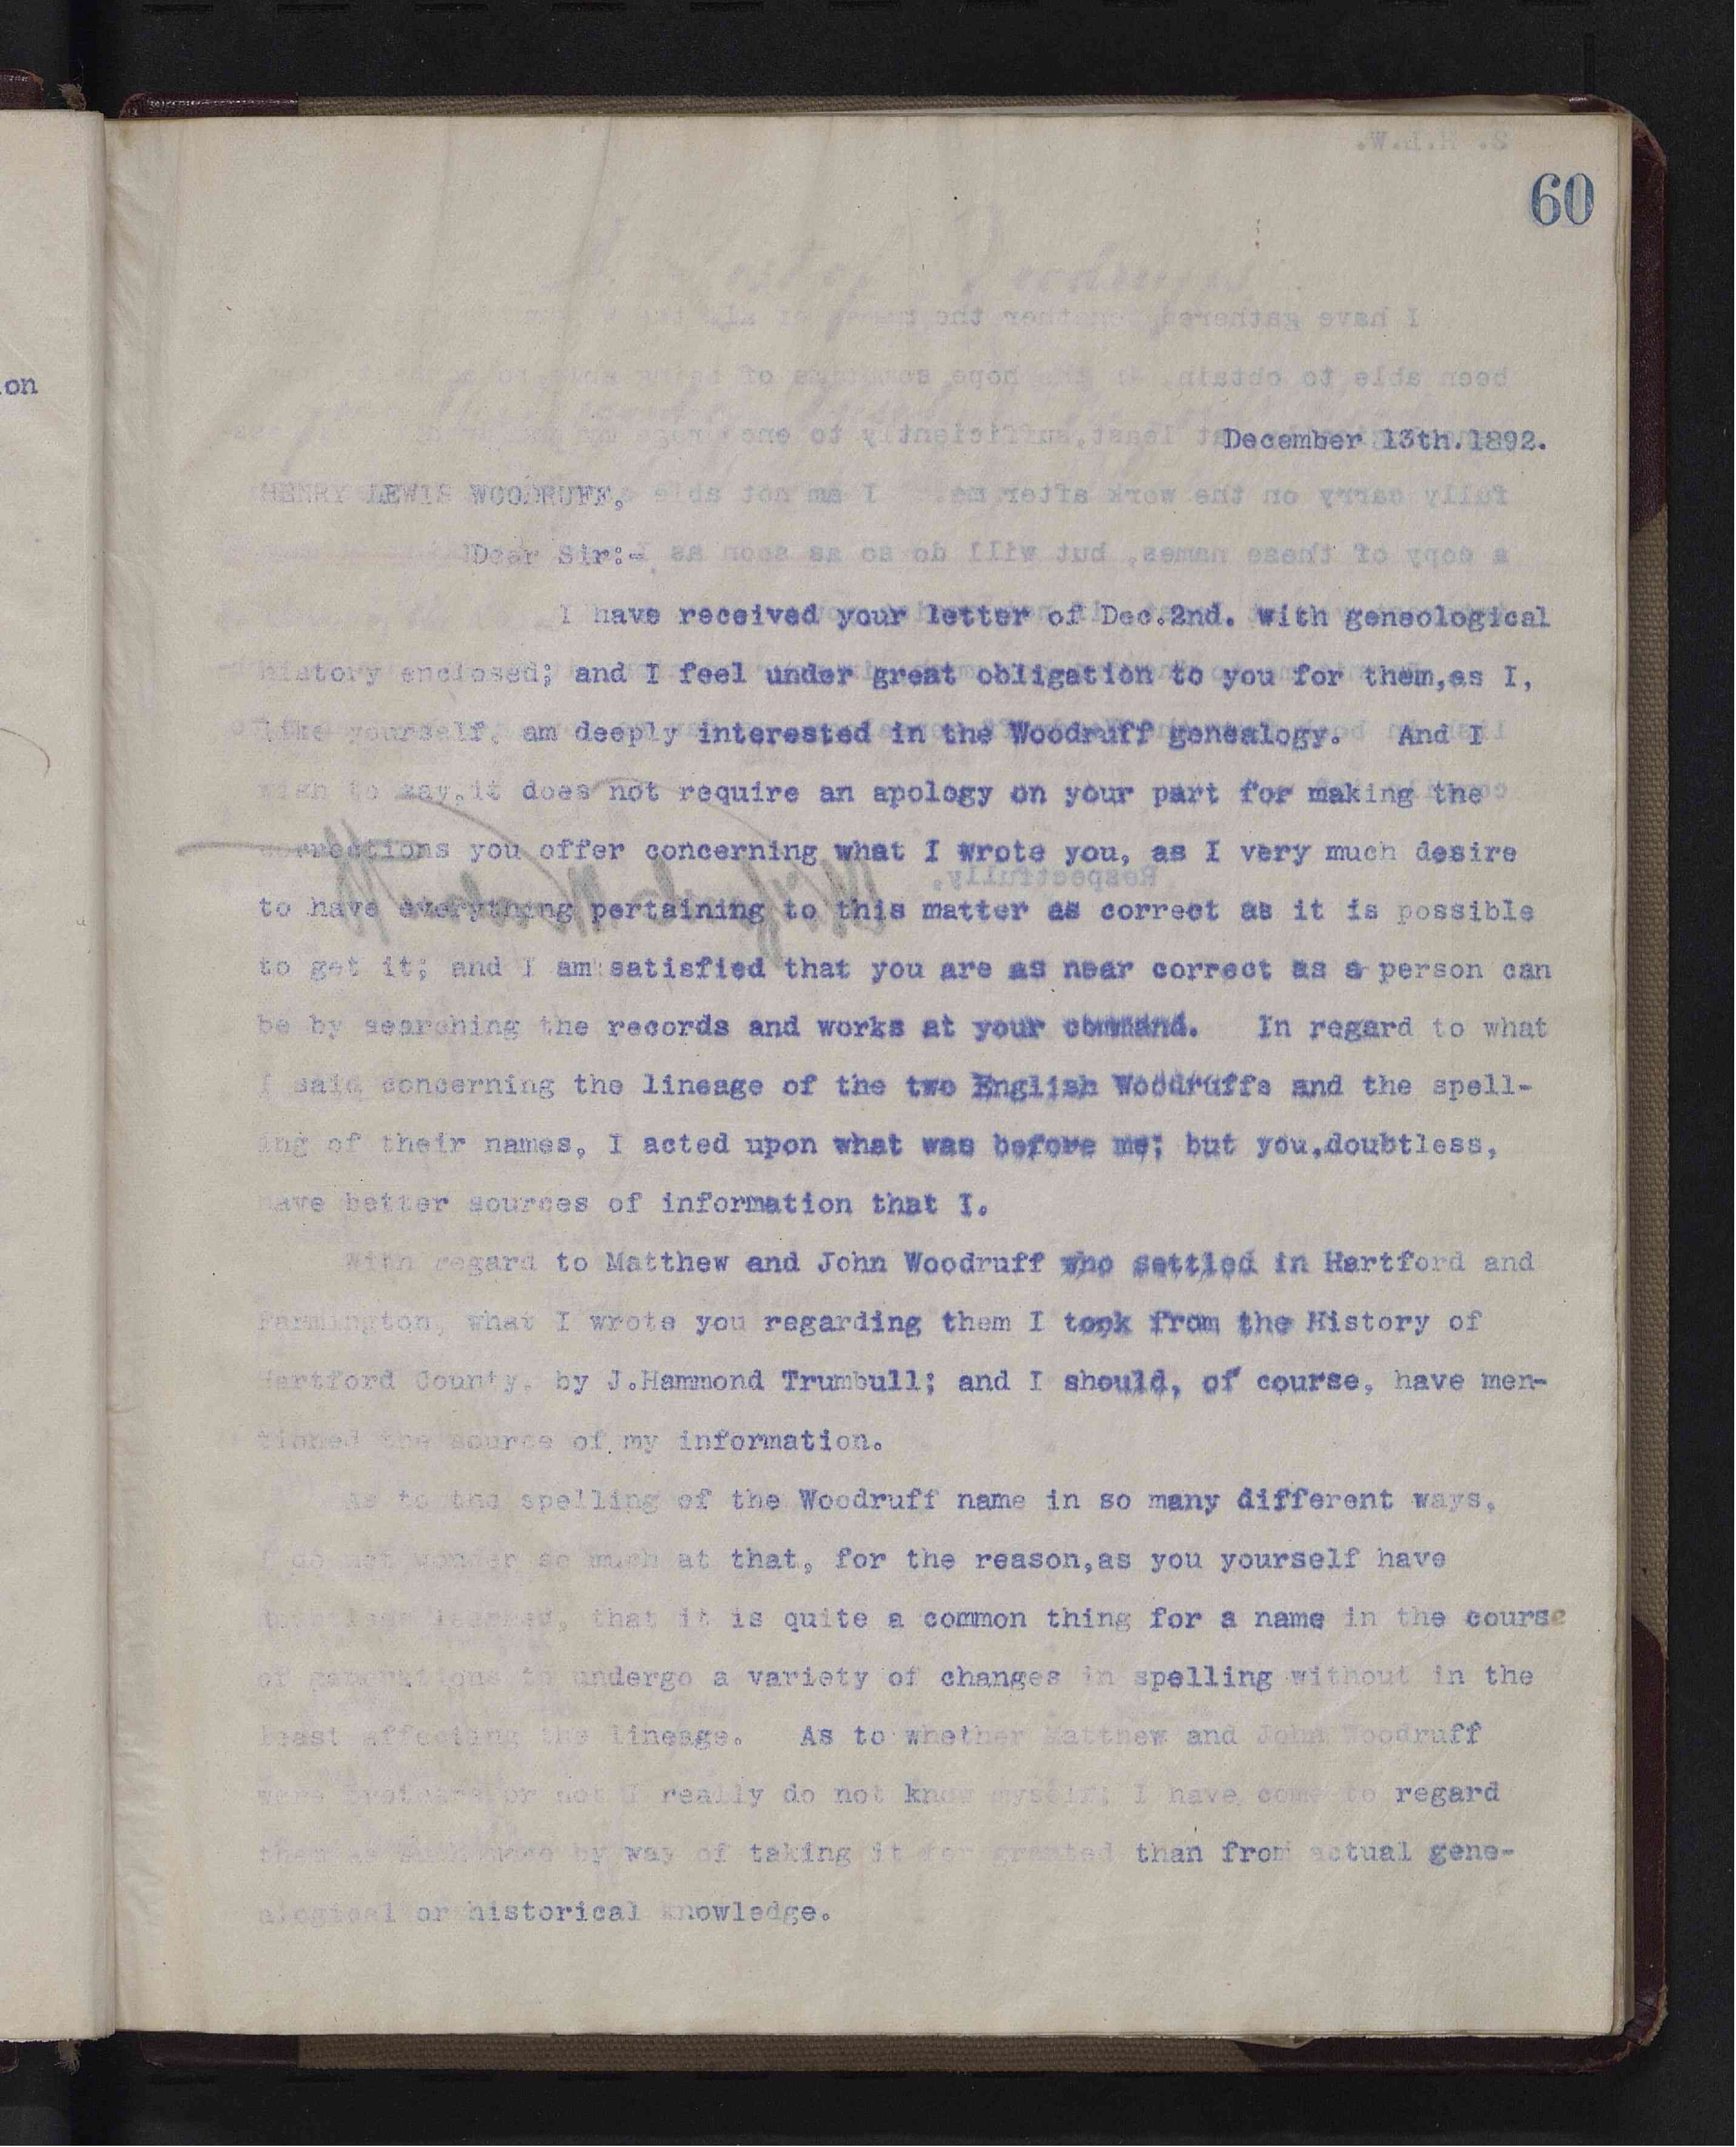 60
on
December 13th.1892.
HENRY LEWIS WOODRUFF,
Dear Sir:-
I have received your letter of Dec.2nd. with geneological
history enclosed; and I feel under great obligation to you for them,as I,
like yourself, am deeply interested in the Woodruff genealogy. And I
wish to say,it does not require an apology on your part for making the
corrections you offer concerning what I wrote you, as I very much desire
to have everything pertaining to this matter as correct as it is possible
to get it; and I am satisfied that you are as near correct as a person can
be by searching the records and works at your command. In regard to what
I said concerning the lineage of the two English Woodruffs and the spell-
ing of their names, I acted upon what was before me; but you,doubtless,
have better sources of information that I.
With regard to Matthew and John Woodruff who settled in Hartford and
Farmington, what I wrote you regarding them I took from the History of
Hartford County, by J.Hammond Trumbull; and I should, of course, have men-
tioned the source of my information.
As to the spelling of the Woodruff name in so many different ways,
I do not wonder so much at that, for the reason,as you yourself have
doubtless learned, that it is quite a common thing for a name in the course
of generations to undergo a variety of changes in spelling without in the
least affecting the lineage. As to whether Matthew and John Woodruff
were brothers or not I really do not know myself; I have come to regard
them as such more by way of taking it for granted than from actual gene-
alogical or historical knowledge.